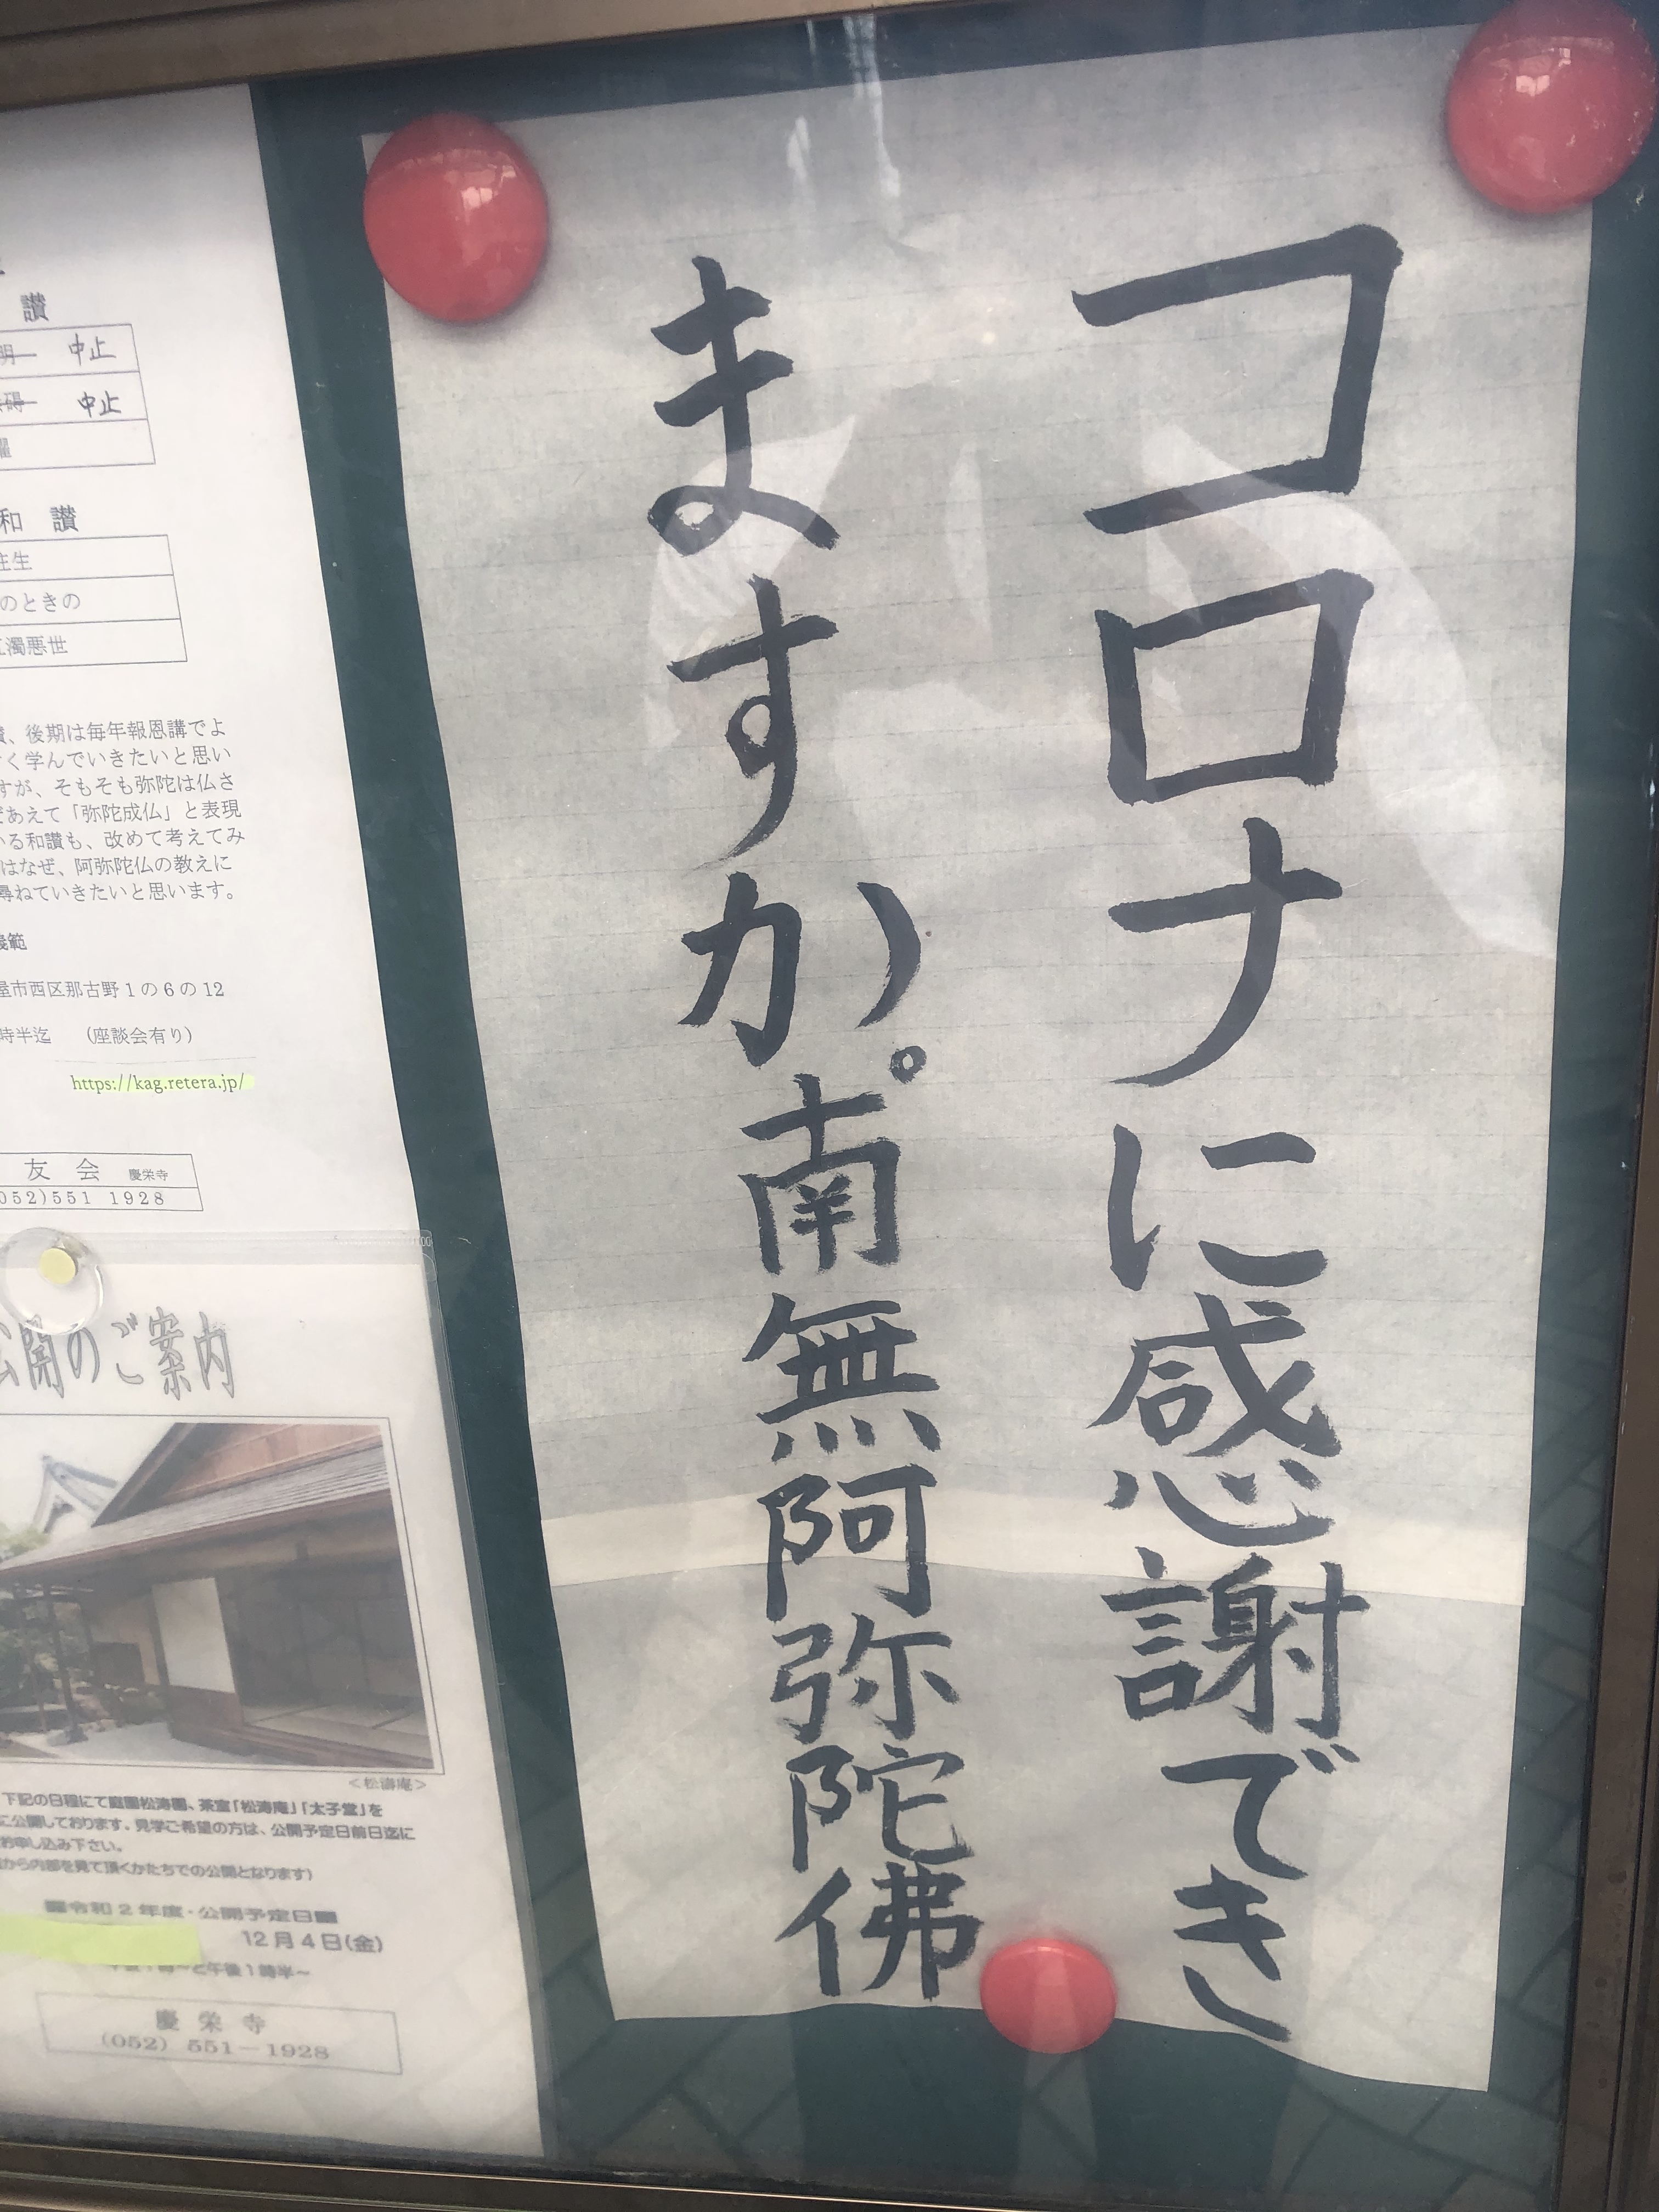 コロナに感謝でき
ますか。南無阿弥陀佛
讃
中止
中止
和 讃
往生
のときの
濁悪世
、後期は毎年報恩講でよ
く学んでいきたいと思い
すが、そもそも弥陀は仏さ
あえて「弥陀成仏」と表現
いる和讃も、改めて考えてみ
はなぜ、阿弥陀仏の教えに
尋ねていきたいと思います。
範
屋市西区那古野1の6の12
時半迄 (座談会有り)
https://kag.retera.jp/
友 会 慶栄寺
052)551 1928
公開のご案内
<松濤庵>
下記の日程にて庭園松涛園、茶室「松涛庵」「太子堂」を
に公開しております。見学ご希望の方は、公開予定日前日迄に
お申し込み下さい。
から内部を見て頂くかたちでの公開となります)
■令和2年度・公開予定日■
12月4日(金)
と午後1時半~
慶 栄 寺
(052) 551-1928